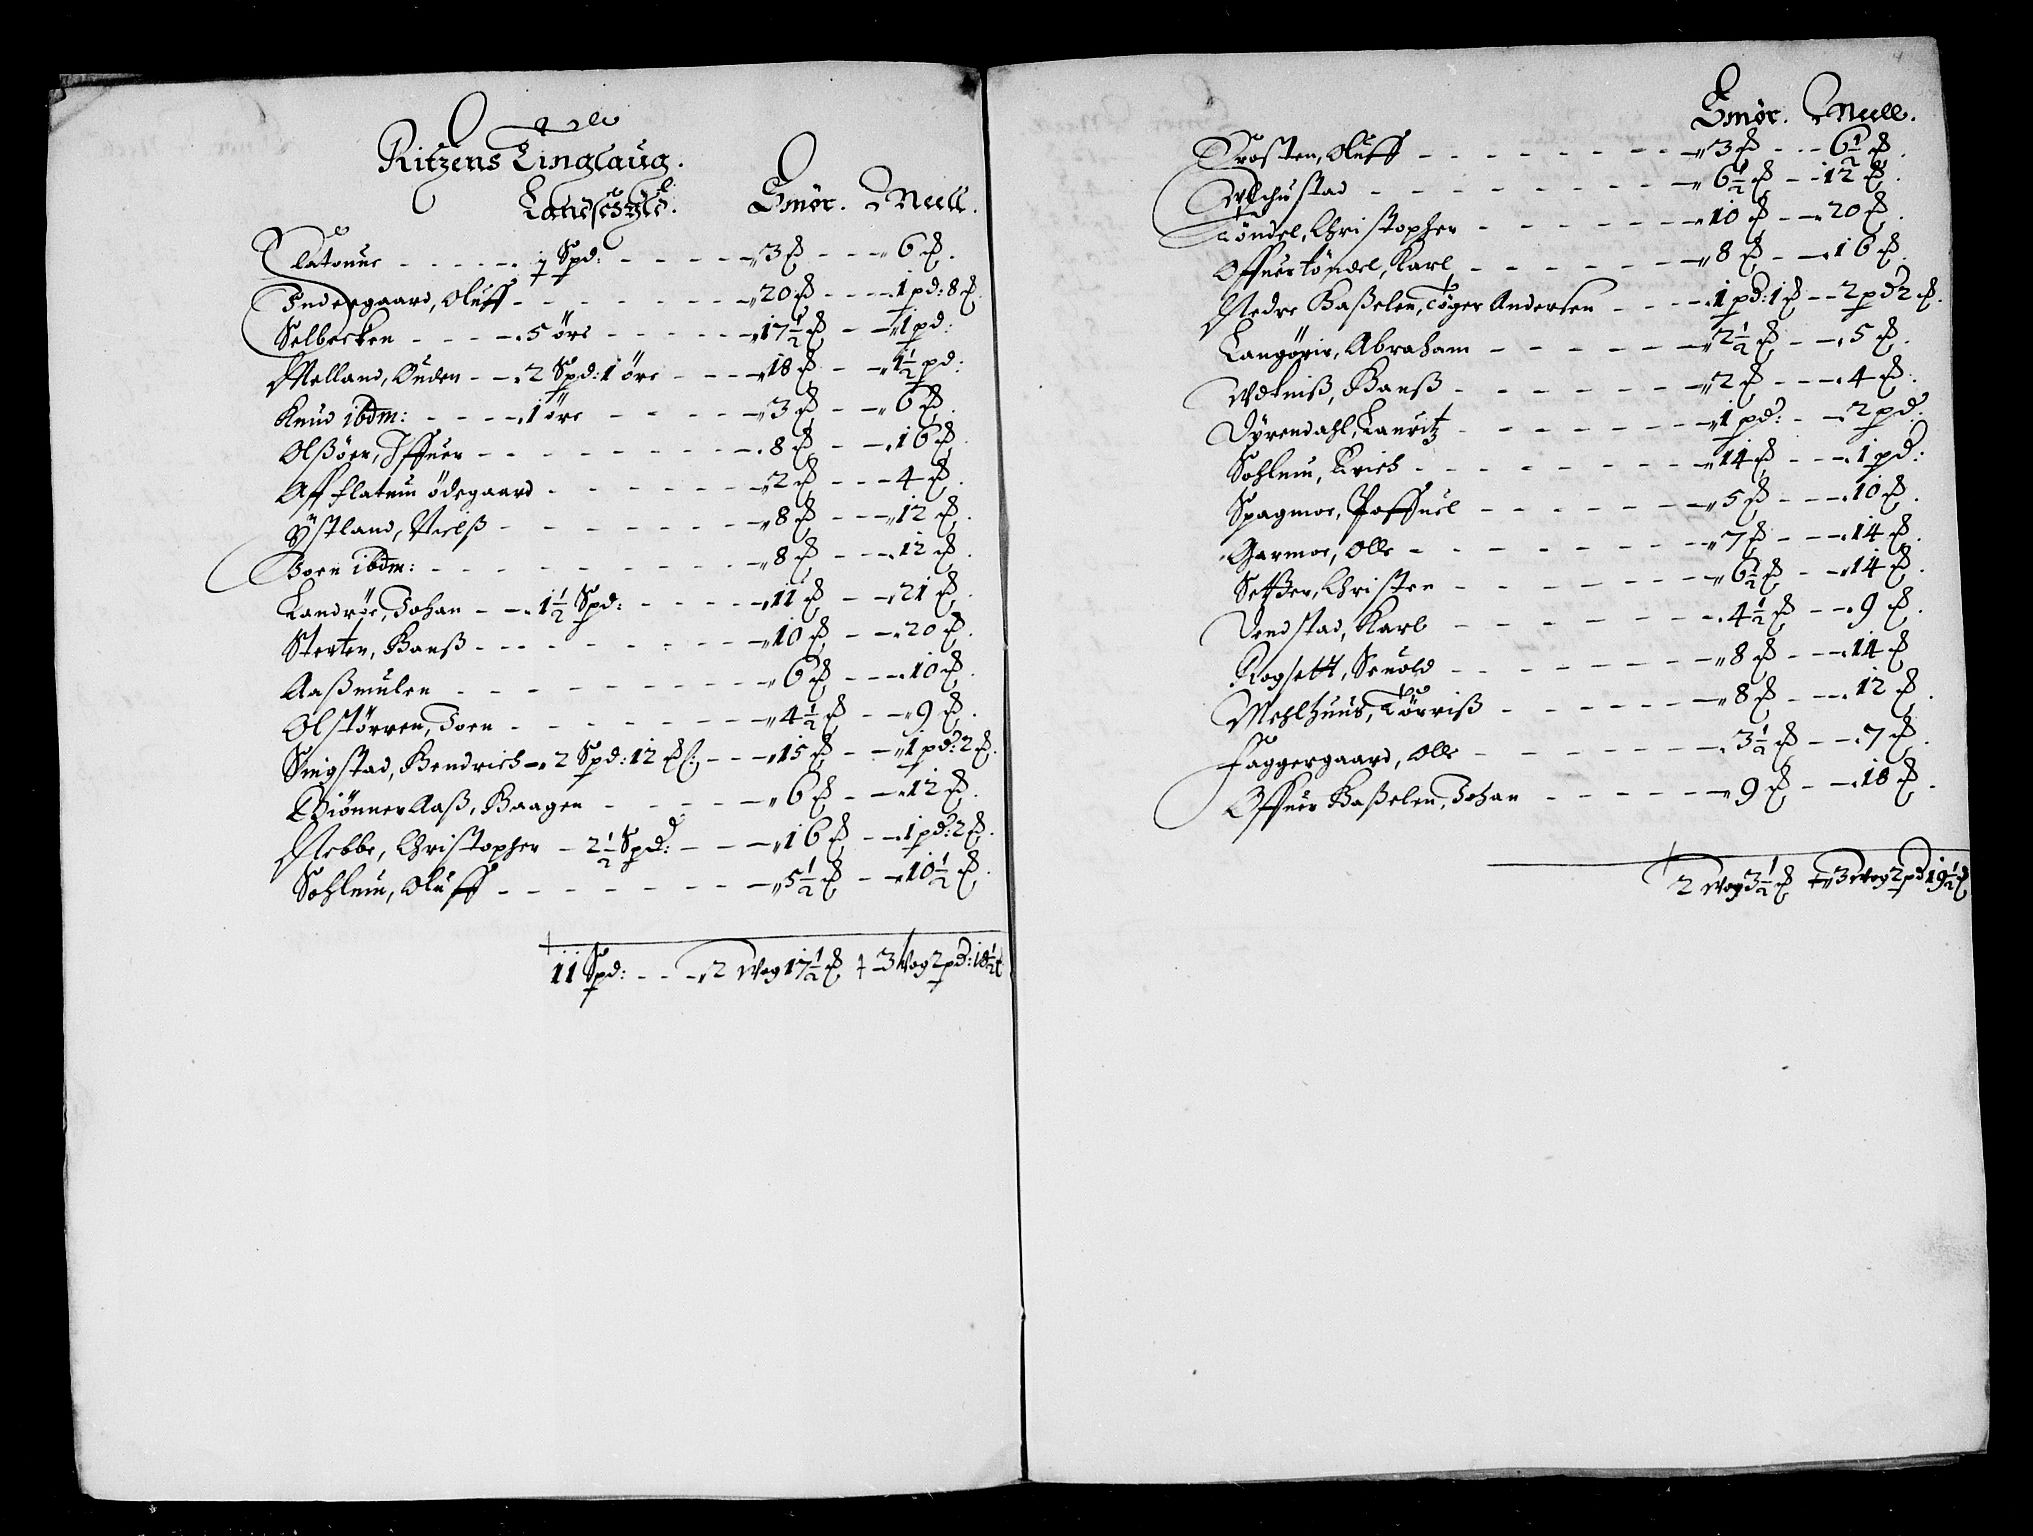 Ritzens Tinglaug.
Landschyld. Smör. Meell.
Flatomme - - - - - . 1 Spd: - - - - - 3 ℔ - - - 6 ℔.
Indergaard, Oluff - - - - - - - 20 ℔ - - - 1 pd: 8 ℔.
Selbecken - - - - . 5 öre - - - - - 17½ ℔ - - 1 pd:
Melland, Anden - - . 2 Spd: 1 öre - - - 18 ℔ - - 1½ pd:
Knud ibdm: - - - - . 1 öre - - - - - 3 ℔ - - 6 ℔.
Olßöen, Iffuer - - - - - - - - . 8 ℔ - - . 16 ℔.
Aff flatem ödegaard - - - - - - 2 ℔ - - - 4 ℔.
Ystland, Nielß - - - - - - - 8 ℔ - - - 12 ℔.
Joen ibdm: - - - - - - - - - 8 ℔ - - - . 12 ℔.
Landröe, Johan - - . 1½ Spd: - - - - - 11 ℔ - - . 21 ℔.
Sterten, Hanß - - - - - - - - - 10 ℔ - - . 20 ℔.
Aaßmulen - - - - - - - - - 6 ℔ - - - . 10 ℔.
Olstörren, Joen - - - - - - - 4½ ℔ - - 9 ℔.
Singstad, Hendrich - . 2 Spd: 12 ℔ - - - 15 ℔ - - 1 pd: 2 ℔.
Biönner Aaß, Haagen - - - - - 6 ℔ - - . 12 ℔.
Nebbe, Christopher - 2½ Spd: - - - 16 ℔ - - . 1 pd: 2 ℔.
Sohlem, Oluff - - - - - - - - 5½ ℔ - - 10½ ℔.
11 Spd: - - - 2 Wog 17½ ℔ 3 Wog 2 pd: 18½ ℔
Smör. Meell.
Trosten, Oluff - - - - - - - - 3 ℔ - - - 6½ ℔.
Wehustad - - - - - - - - - 6½ ℔ - - 12 ℔.
Töndel, Christopher - - - - - - 10 ℔ - - . 20 ℔.
Offuertöndel, Karl - - - - - - 8 ℔ - - . 16 ℔.
Nedre Haßelen, Töger Andersen - - - - . 1 pd: 1 ℔ - - 2 pd 2 ℔.
Langörin, Abraham - - - - - - 2½ ℔ - - . 5 ℔.
Wdtniß, Hanß - - - - - - - - 2 ℔ - - - . 4 ℔.
Dyrendahl, Lauritz - - - - - - - 1 pd: - - . 2 pd:
Sohlem, Erich - - - - - - - - - 14 ℔ - - - . 1 pd:
Spagmoe, Poffuel - - - - - - - 5 ℔ - - - . 10 ℔.
Garmoe, Olle - - - - - - - - - 7 ℔ - - - . 14 ℔.
Setßer, Christen - - - - - - - 6½ ℔ - - 14 ℔.
Vendstad, Karl - - - - - - - . 4½ ℔ - - . 9 ℔.
Rogsett, Seuold - - - - - - - - 8 ℔ - - - . 14 ℔
Mehlhuus, Törriß - - - - - - - 8 ℔ - - - . 12 ℔.
Faggergaard, Olle - - - - - - - . 3½ ℔ - - . 7 ℔.
Offuer Haßelen, Johan - - - - - - 9 ℔ - - . 18 ℔.
2 Wog 3½ ℔ 3 Wog 2 pd 19½ ℔